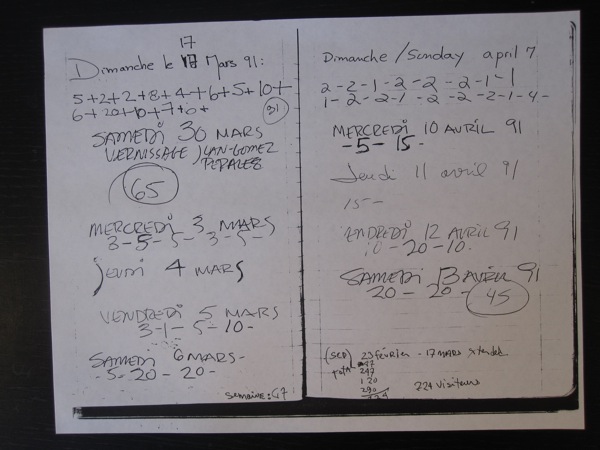 17
Dimanche le 17 Mars 91:
5+2+2+8+4+6+5+10+
6+20+10+7+0+
91
SAMEDI 30 MARS
VERNISSAGE JUAN-GOMEZ
PERALES
65
MERCREDI 3 MARS
3-5-5-3-5-
JEUDI 4 MARS
VENDREDI 5 MARS
3-1-5-10-
SAMEDI 6 MARS-
-5-20-20-
semaine:
Dimanche/Sunday april 7
2-2-1-2-2-2-1-1
1-2-2-1-2-2-2-1-4-
MERCREDI 10 AVRIL 91
-5-15-
Jeudi 11 avril 91
15-
VENDREDI 12 AVRIL 91
10-20-10.
SAMEDI 13 AVRIL 91
20-20-45
23 février - 17 mars
total
247
120
290
724 visiteurs